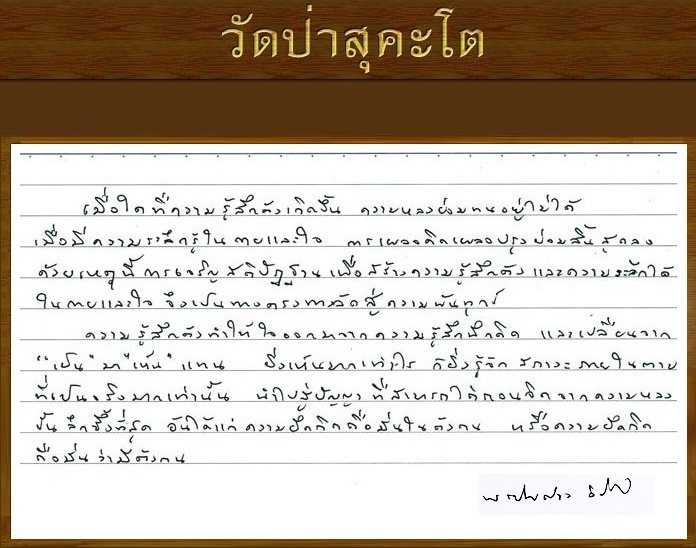 วัดป่าสุคะโต
เมื่อใดที่ความรู้สึกตัวเกิดขึ้น ความหลงย่อมทนอยู่ไม่ได้
เมื่อมีความระลึกรู้ในกายและใจ การเผลอคิดเผลอปรุงย่อมสิ้นสุดลง
ด้วยเหตุนี้การเจริญสติปัฏฐานเพื่อสร้างความรู้สึกตัว และความระลึกได้
ในกายและใจ จึงเป็นทางตรงทางลัดสู่ความพ้นทุกข์
ความรู้สึกตัวทำให้ใจออกมาจากความรู้สึกนึกคิด และเปลี่ยนจาก
"เป็น" มา "เห็น" แทน ยิ่งเห็นมากเท่าไร ก็ยิ่งรู้จักสภาวะภายในตาม
ที่เป็นจริงมากเท่านั้น นำไปสู่ปัญญาที่สามารถไถ่ถอนจิตจากความหลง
ขั้นลึกซึ้งที่สุด อันได้แก่ความยึดติดถือมั่นในตัวตน หรือความยึดติด
ถือมั่นว่ามีตัวตน